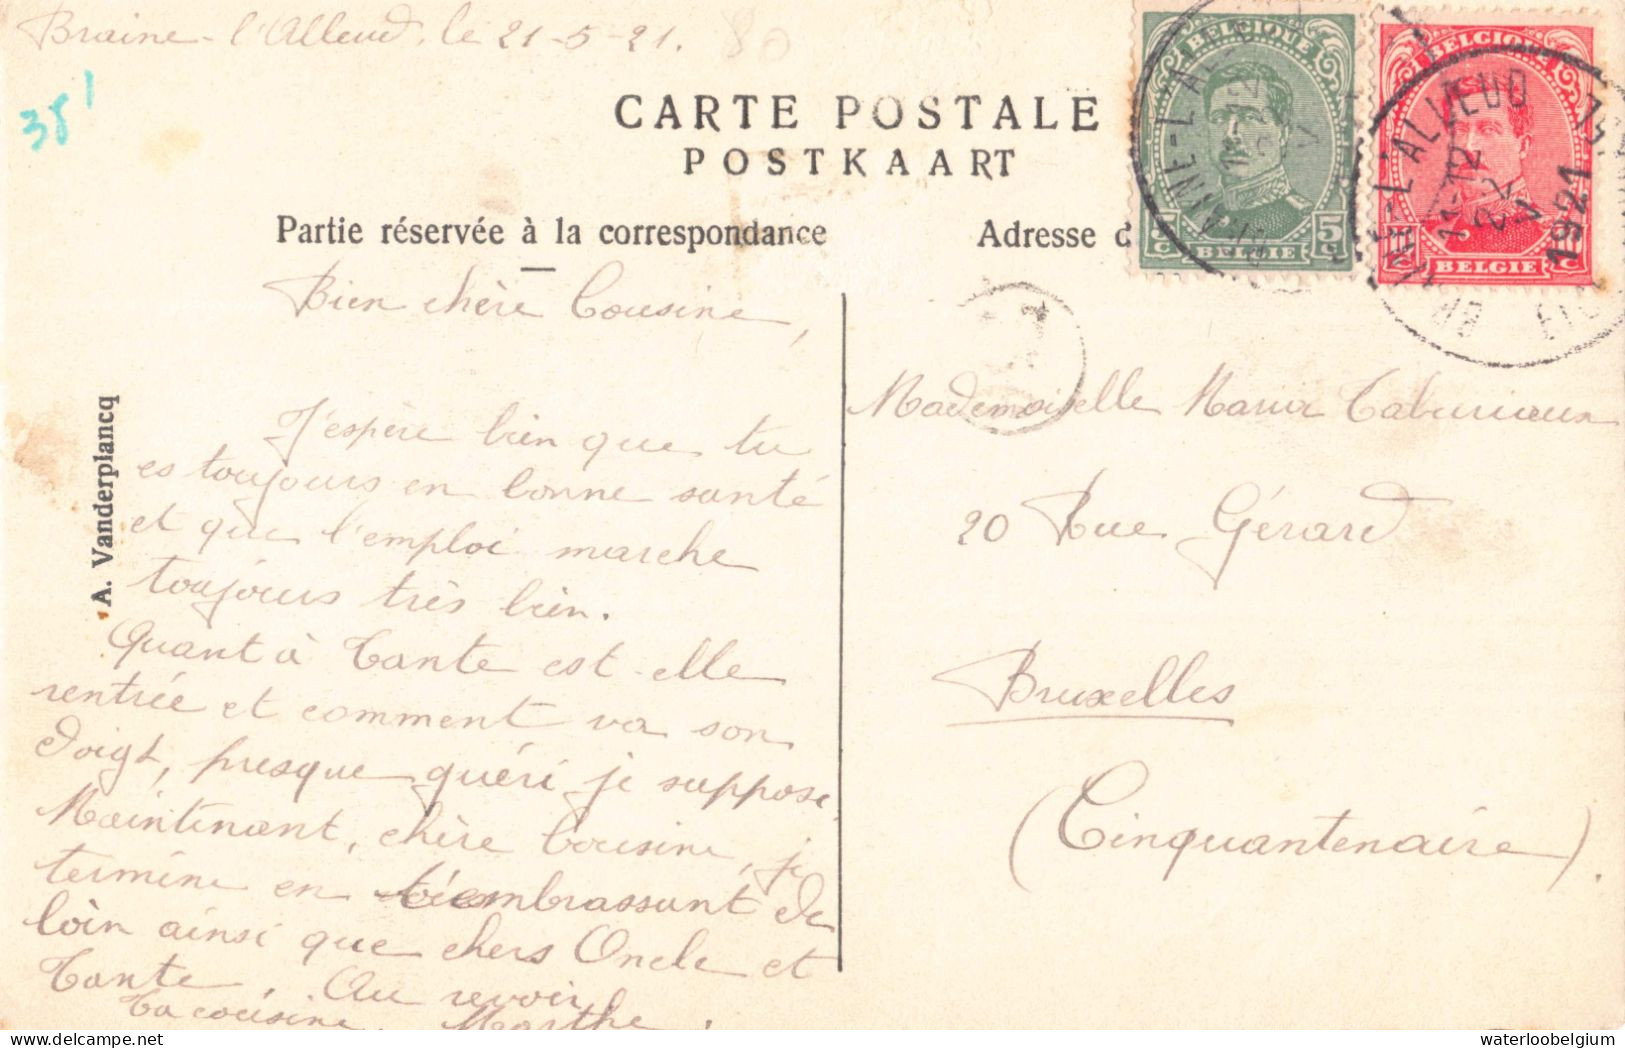 Braine-l'Alleud, le 21-5-21.
80
38'
CARTE POSTALE
POSTKAART
Partie réservée à la correspondance
Adresse d
BELGIQUE
5 C 5 C
BELGIE
BELGIQUE
C
BELGIE
BRAINE-L'ALLEUD
11-12
22
V
1921
A. Vanderplancq
Bien chère Cousine,
J'espère bien que tu
es toujours en bonne santé
et que l'emploi marche
toujours très bien.
Quant à Tante est-elle
rentrée et comment va son
doigt, presque guéri je suppose
Maintenant, chère Cousine, je
termine en t'embrassant de
loin ainsi que chers Oncle et
Tante. Au revoir
Ta cousine, Marthe.
Mademoiselle Maria Taburiaux
20 Rue Gérard
Bruxelles
(Cinquantenaire).
waterloobelgium